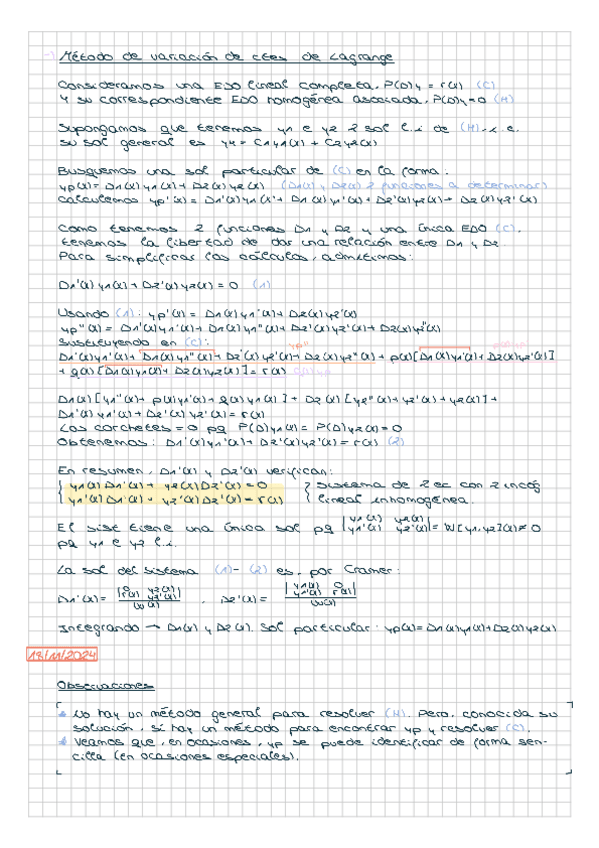 → Método de variación de ctes de Lagrange
Consideramos una EDO lineal completa, P(D)y = r(x) (C)
y su correspondiente EDO homogénea asociada, P(D)y=0 (H)
Supongamos que tenemos y1 e y2 2 sol l.i de (H), i. e.
su sol general es yH = C1y1(x) + C2y2(x)
Busquemos una sol particular de (C) en la forma:
yp(x)= D1(x)y1(x)+ D2(x)y2(x) (D1(x) y D2(x) 2 funciones a determinar)
Calculemos yp'(x)= D1'(x)y1(x)+ D1(x)y1'(x)+ D2'(x)y2(x)+ D2(x)y2'(x)
Como tenemos 2 funciones D1 y D2 y una única EDO (C),
tenemos la libertad de dar una relación entre D1 y D2.
Para simplificar los cálculos, admitimos:
D1'(x)y1(x)+ D2'(x)y2(x) = 0 (1)
Usando (1): yp'(x) = D1(x)y1'(x)+ D2(x)y2'(x)
yp''(x) = D1'(x)y1'(x)+ D1(x)y1''(x)+ D2'(x)y2'(x)+ D2(x)y2''(x)
Sustituyendo en (C):
D1'(x)y1'(x)+ D1(x)y1''(x)+ D2'(x)y2'(x)+ D2(x)y2''(x) + p(x)[D1(x)y1'(x)+ D2(x)y2'(x)]
+ q(x)[D1(x)y1(x)+ D2(x)y2(x)]= r(x)
D1(x)[y1''(x)+ p(x)y1'(x)+ q(x)y1(x)] + D2(x)[y2''(x)+y2'(x)+y2(x)]+
D1'(x)y1'(x)+ D2'(x)y2'(x)= r(x)
Los corchetes = 0 pq P(D)y1(x)= P(D)y2(x)=0
Obtenemos: D1'(x)y1'(x)+ D2'(x)y2'(x)= r(x) (2)
En resumen, D1'(x) y D2'(x) verifican:
{ y1(x)D1'(x)+ y2(x)D2'(x)=0 } sistema de 2 ec con 2 incóg
{ y1'(x)D1'(x)+ y2'(x)D2'(x)= r(x) lineal inhomogénea.
El sist tiene una única sol pq |y1(x) y2(x)| |y1'(x) y2'(x)| = W[y1,y2](x)≠0
pq y1 e y2 l.i.
La sol del sistema (1)-(2) es, por Cramer:
D1'(x)= |0 y2(x)| |r(x) y2'(x)| / W(x) , D2'(x)= |y1(x) 0| |y1'(x) r(x)| / W(x)
Integrando → D1(x) y D2(x). Sol particular: yp(x)= D1(x)y1(x)+D2(x)y2(x)
18/11/2024
Observaciones
No hay un método general para resolver (H). Pero, conocida su
solución, sí hay un método para encontrar yp y resolver (C).
Veamos que, en ocasiones, yp se puede identificar de forma sen-
cilla (en ocasiones especiales).